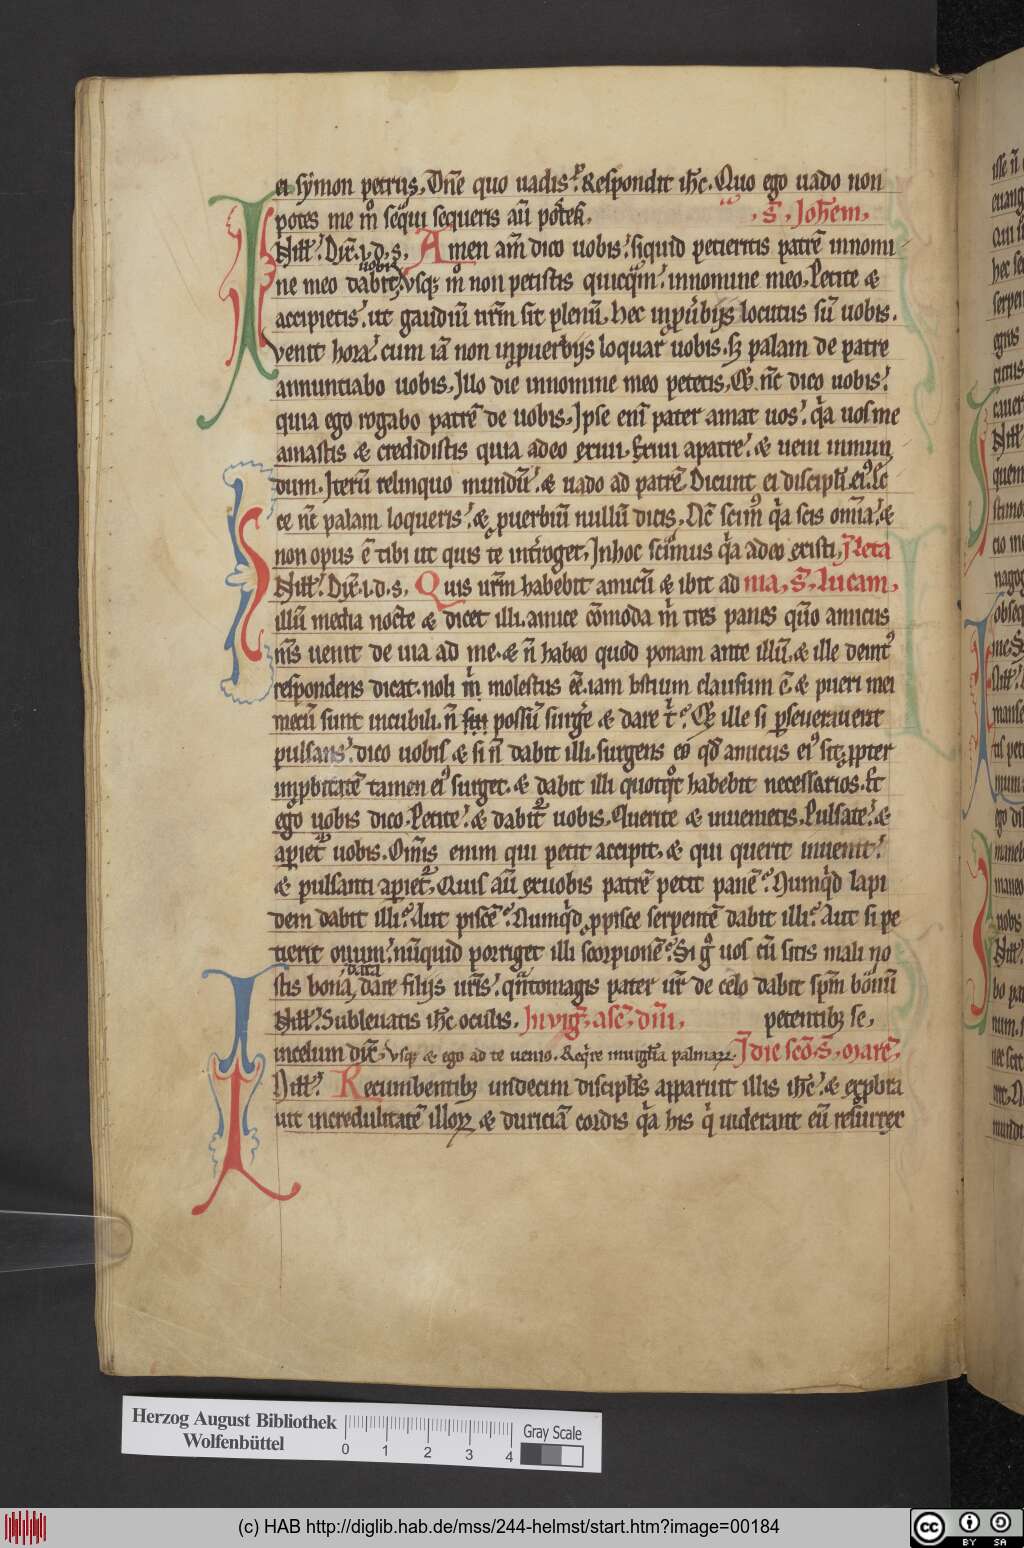 ei sẏmon petrus. Dn̄e quo uadis. & Respondit ih̄c. Quo ego uado non
potes me m̊ seq̈ui sequeris aū poṫea.
.s̄. Joh̄em.
N ill̄. Dix̄. i. d. s. Amen am̄ dico uobis. siquid petieritis patrē innomi
ne meo dabit uobis. Vsq; m̊ non petistis quicq̈m. innomine meo. Petite &
accipietis. ut gaudiū ur̄m sit plenū. hec inꝓu̇biis locutus sū uobis.
venit hora. cum iā non inꝓuerbiis loquar uobis. sꝫ palam de patre
annuntiabo uobis. Jllo die innomine meo petetis. Et nc̄ dico uobis.
quia ego rogabo patrē de uobis. Jpse eni̅ pater amat uos. q̇a uos me
amastis & credidistis quia adeo exiui. Exiui apatre. & ueni inmun
dum. Jterū relinquo mundū. & uado ad patrē. Dicunt ei discipl̄i eiꝰ. Ec
ce nc̄ palam loqueris. & ꝓuerbiū nullū dicis. Nc̄ scimꝰ q̇a scis om̄ia. &
non opus ē tibi ut quis te int̊roget. Jnhoc scim̈us q̇a adeo existi. J leta
nia. s̄. Lucam.
N ill̄. Dix̄. i. d. s. Quis ur̄m habebit amicū & ibit ad
illū media nocte & dicet illi. amice cōmoda m̊ tres panes qūo amicus
m̄s uenit de uia ad me. & n̄ habeo quod ponam ante illū. & ille deintꝰ
respondens dicat. noli m̊ molestus eē. iam hostium clausum ē & pueri mei
mecū sunt incubili. n̄ possū surge̊ & dare t̊. Et ille si ꝑseuerauerit
pulsans. dico uobis & si n̄ dabit illi. surgens eo qd̄ amicus eiꝰ sit. ꝓpter
inꝓbitatē tamen eiꝰ surget. & dabit illi quotq̊t habebit necessarios. Et
ego uobis dico. Petite. & dabit᷑ uobis. Querite & inuenietis. Pulsate. &
apiet᷑ uobis. Om̄is enim qui petit accipit. & qui querit inuenit.
& pulsanti apiet᷑. Quis aū exuobis patrē petit panē. Numq̇d lapi
dem dabit illi. Aut piscē. Numq̇d ꝓpisce serpentē dabit illi. Aut si pe
tierit ouum. nūquid porriget illi scorpionē. Si g̊ uos cū sitis mali no
stis bona data dare filiis ur̄is. q̈ntomagis pater ur̄ de celo dabit spm̄ bonū
petentibꝫ se.
N ill̄. Subleuatis ih̄c oculis. Jnvigł. asc̄. dn̄i.
incelum dix̄. Vsq; & ego ad te uenio. Req̊re inuigl̄ia palmaꝝ. J die sc̄o. s̄. Marc̄.
N ill̄. Recumbentibꝫ undecim discipl̄is apparuit illis ih̄c. & exp̄bra
uit incredulitatē illoꝝ & duriciā cordis q̇a his q̇ uiderant eū resurrex
Herzog August Bibliothek
Wolfenbüttel
0 1 2 3 4
Gray Scale
(c) HAB http://diglib.hab.de/mss/244-helmst/start.htm?image=00184
cc BY SA